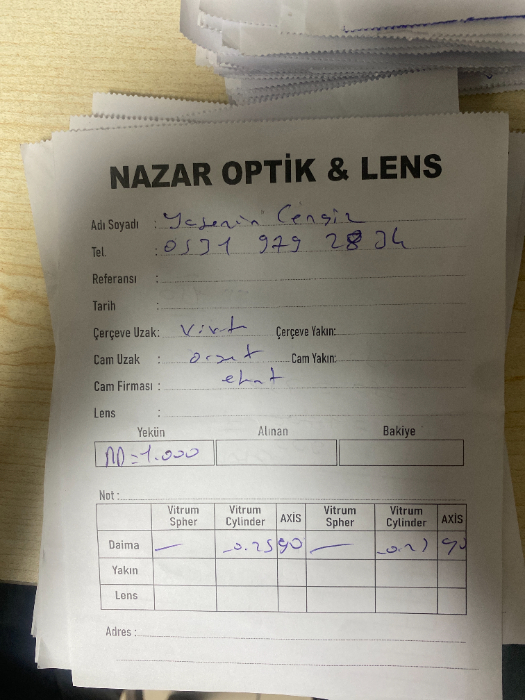 NAZAR OPTİK & LENS
Adı Soyadı : Yasemin Cengiz
Tel. : 0531 979 28 34
Referansı :
Tarih :
Çerçeve Uzak: Çerçeve Yakın:
Cam Uzak : Cam Yakın:
Cam Firması :
Lens :
Yekün Alınan Bakiye
=1.000
Not :
Vitrum Spher Vitrum Cylinder AXİS Vitrum Spher Vitrum Cylinder AXİS
Daima — -0.25 90 — -0.25 90
Yakın
Lens
Adres :